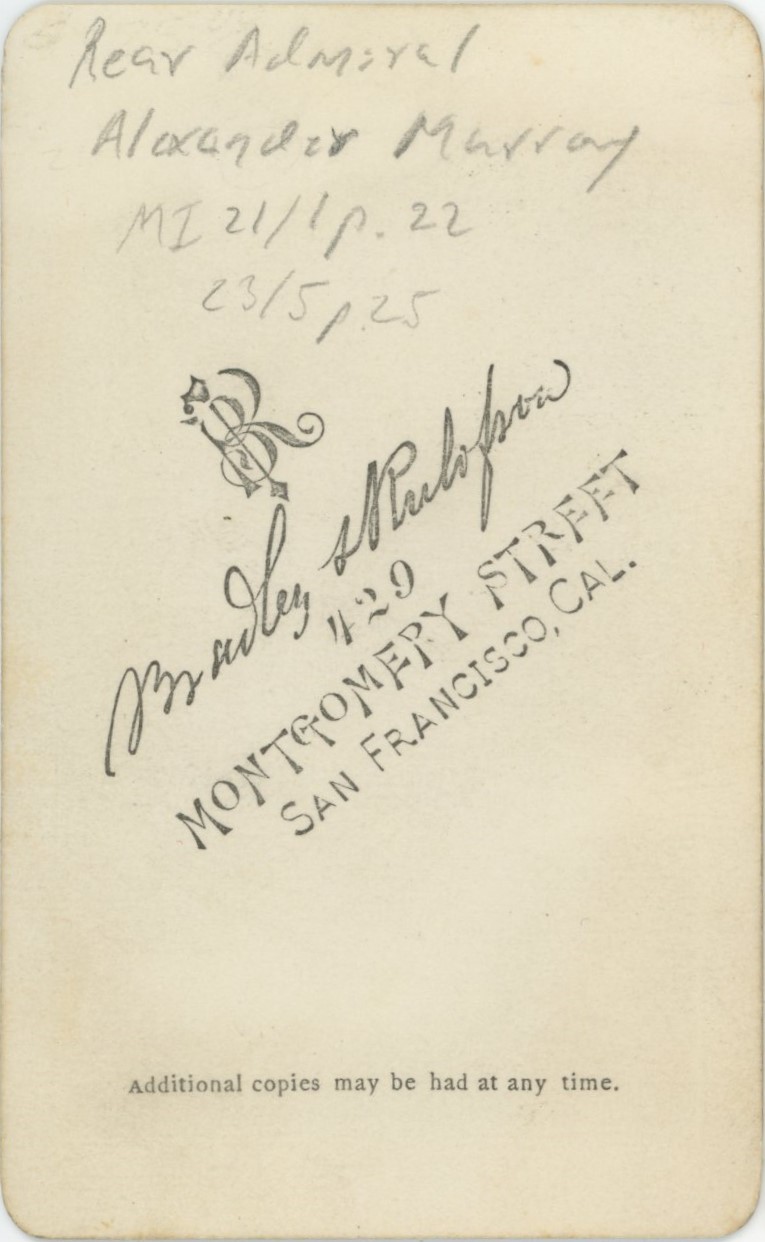 Rear Admiral
Alexander Murray
MI 21/1 p. 22
23/5 p. 25
BR
Bradley & Rulofson
429
MONTGOMERY STREET
SAN FRANCISCO, CAL.
Additional copies may be had at any time.